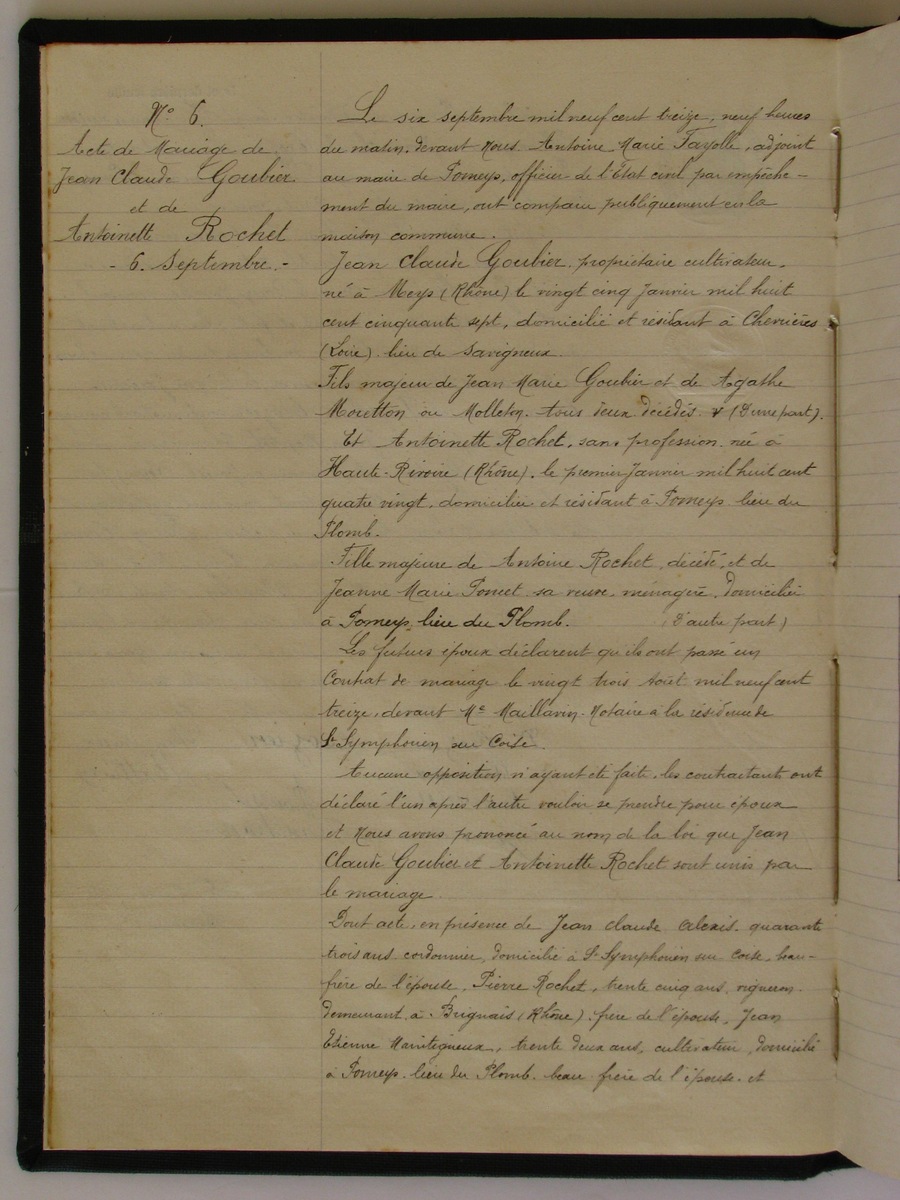 No 6.
Acte de Mariage de
Jean Claude Goubier
et de
Antoinette Rochet
- 6. Septembre. -
Le six septembre mil neuf cent treize, neuf heures
du matin, devant Nous Antoine Marie Fayolle, adjoint
au maire de Pomeys, officier de l'Etat civil par empêche-
ment du maire, ont comparu publiquement en la
maison commune.
Jean Claude Goubier, propriétaire cultivateur,
né à Meys (Rhône) le vingt cinq Janvier mil huit
cent cinquante sept, domicilié et résidant à Chevrières
(Loire) lieu de Savigneux.
Fils majeur de Jean Marie Goubier et de Agathe
Moretton ou Molleton, tous deux décédés. (D'une part).
Et Antoinette Rochet, sans profession née à
Haute-Rivoire (Rhône), le premier Janvier mil huit cent
quatre vingt, domiciliée et résidant à Pomeys lieu du
Plomb.
Fille majeure de Antoine Rochet, décédé, et de
Jeanne Marie Poncet sa veuve, ménagère, domiciliée
à Pomeys, lieu du Plomb. (D'autre part)
Les futurs époux déclarent qu'ils ont passé un
Contrat de mariage le vingt trois Août mil neuf cent
treize, devant Me Maillavin Notaire à la résidence de
St Symphorien sur Coise.
Aucune opposition n'ayant été faite, les contractants ont
déclaré l'un après l'autre vouloir se prendre pour époux
et Nous avons prononcé au nom de la loi que Jean
Claude Goubier et Antoinette Rochet sont unis par
le mariage.
Dont acte, en présence de Jean Claude Alexis, quarante
trois ans, cordonnier, domicilié à St Symphorien sur Coise, beau-
frère de l'épouse, Pierre Rochet, trente cinq ans, vigneron
demeurant à Brignais (Rhône), frère de l'épouse, Jean
Etienne trente deux ans, cultivateur, domicilié
à Pomeys, lieu du Plomb, beau frère de l'épouse, et